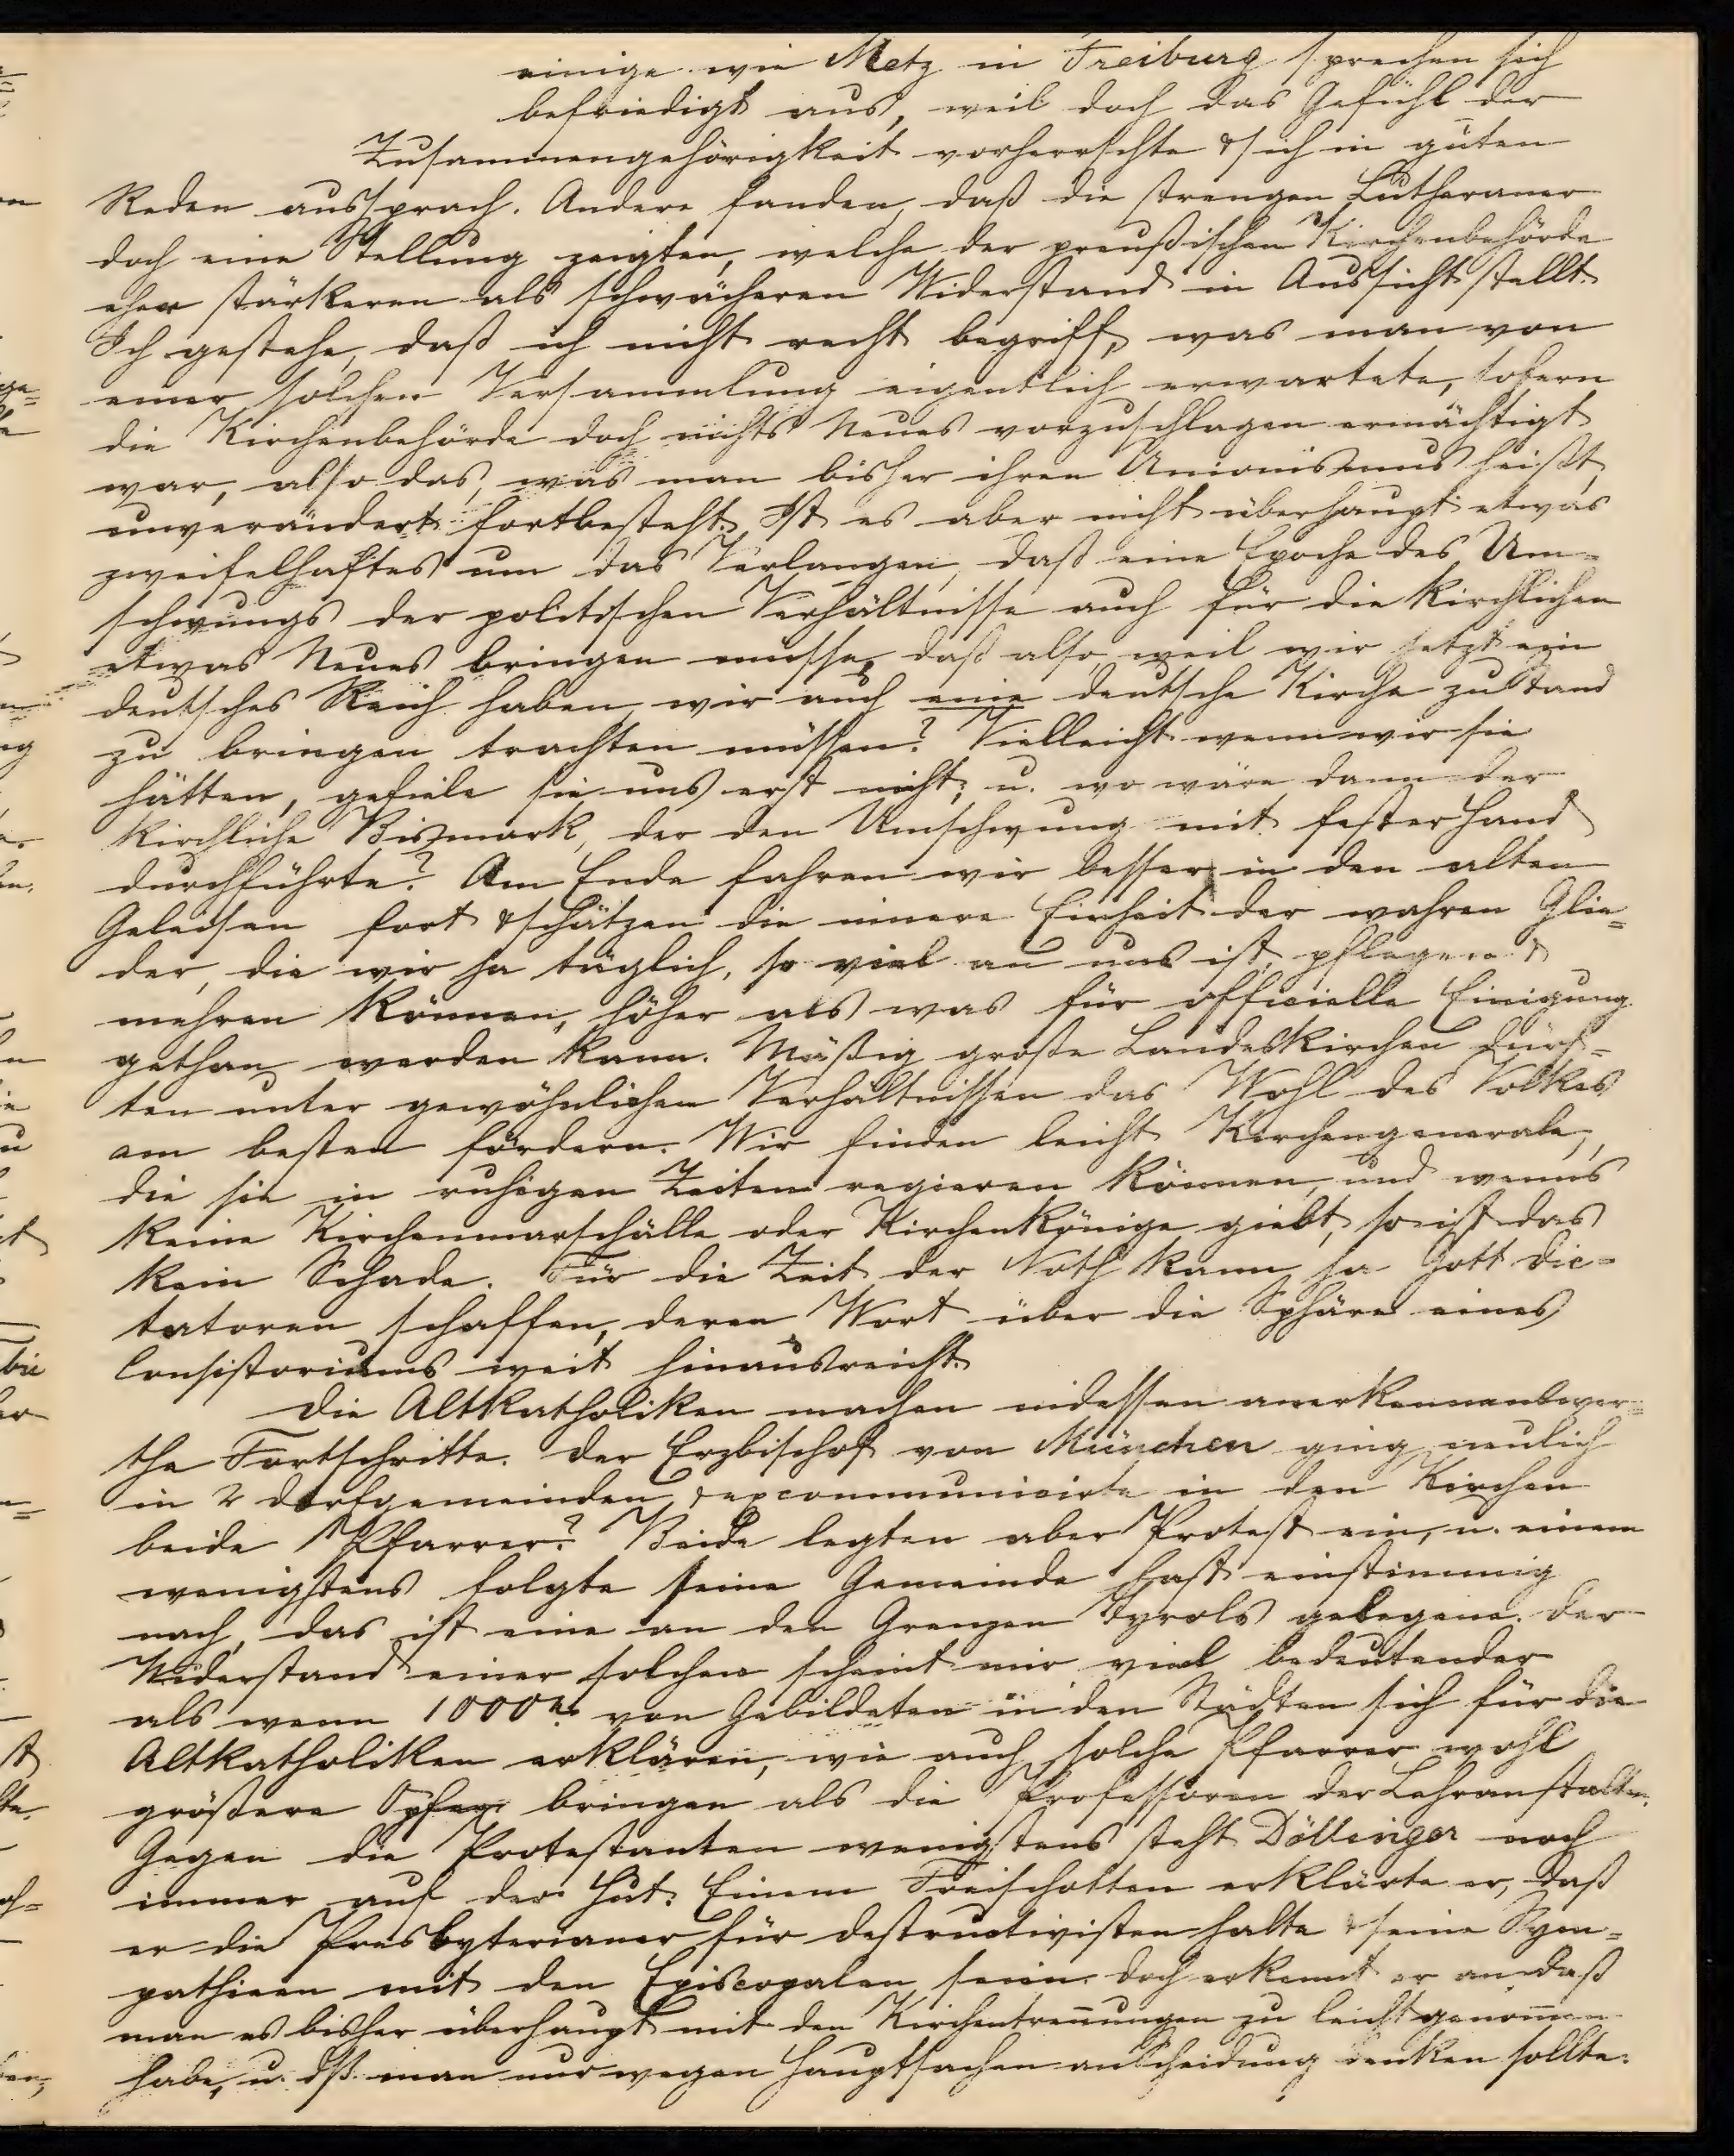 einige wie Metz in Freiburg sprechen sich
befriedigt aus, weil doch das Gefühl der
Zusammengehörigkeit vorherrschte & sich in guten
Reden aussprach. Andere fanden, daß die strengen Lutheraner
doch eine Stellung zeigten, welche der preußischen Kirchenbehörde
eher stärkeren als schwächeren Widerstand in Aussicht stellt.
Ich gestehe, daß ich nicht recht begriff, was man von
einer solchen Versammlung eigentlich erwartete, sofern
die Kirchenbehörde doch nichts Neues vorzuschlagen ermächtigt
war, also das, was man bisher ihren Unionismus heißt,
unverändert fortbesteht. Ist es aber nicht überhaupt etwas
zweifelhaftes um das Verlangen, daß eine Epoche des Um-
schwungs der politischen Verhältnisse auch für die kirchlichen
etwas Neues bringen müsse, daß also, weil wir jetzt ein
deutsches Reich haben, wir auch eine deutsche Kirche zustand
zu bringen trachten müssen? Vielleicht wenn wir sie
hätten, gefiele sie uns erst nicht; u. wo wäre dann der
kirchliche Bismark, der den Umschwung mit fester Hand
durchführte? Am Ende fahren wir besser in den alten
Geleisen fort & schätzen die innere Einheit der wahren Glie-
der, die wir ja täglich, so viel an uns ist, pflegen &
mehren können, höher als was für officielle Einigung
gethan werden kann. Mäßig große Landeskirchen dürf-
ten unter gewöhnlichen Verhältnissen das Wohl des Volkes
am besten fördern. Wir finden leicht Kirchengenerale,
die sie in ruhigen Zeiten regieren können, und wenns
keine Kirchenmarschälle oder Kirchenkönige giebt, so ist das
kein Schade. Für die Zeit der Noth kann ja Gott Dic-
tatoren schaffen, deren Wort über die Sphäre eines
Consistoriums weit hinausreicht.
Die Altkatholiken machen indessen anerkennenswer-
the Fortschritte. Der Erzbischof von München ging neulich
in 2 Dorfgemeinden & excommunicirte in den Kirchen
beide Pfarrer? Beide legten aber Protest ein, u. einem
wenigstens folgte seine Gemeinde fast einstimmig
nach, das ist eine an den Grenzen Tyrols gelegene. Der
Widerstand einer solchen scheint mir viel bedeutender
als wenn 1000e von Gebildeten in den Städten sich für die
Altkatholiken erklären, wie auch solche Pfarrer wohl
größere Opfer bringen als die Professoren der Lehranstalten.
Gegen die Protestanten wenigstens steht Döllinger noch
immer auf der Hut. Einem Freischotten erklärte er, daß
er die Presbyterianer für Destructivisten halte & seine Sym-
pathieen mit den Episcopalen seien. Doch erkennt er an daß
man es bisher überhaupt mit den Kirchentrennungen zu leicht genommen
habe, u. dß. man nur wegen Hauptsachen an Scheidung denken sollte.